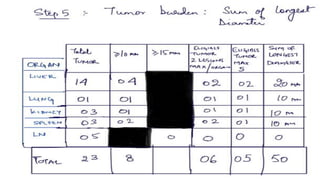 Step 5 :- Tumor burden : Sum of longest
Diameter
ORGAN Total TUMOR ≥10mm ≥15mm ELIGIBLE TUMOR 2 LESIONS MAX/ORGAN ELIGIBLE TUMOR MAX 5 SUM OF LONGEST DIAMETER
LIVER 14 04 02 02 20mm
LUNG 01 01 01 01 10mm
KIDNEY 03 01 01 01 10mm
SPLEEN 03 02 02 01 10mm
LN 05 0 0 0 0
TOTAL 23 8 06 05 50